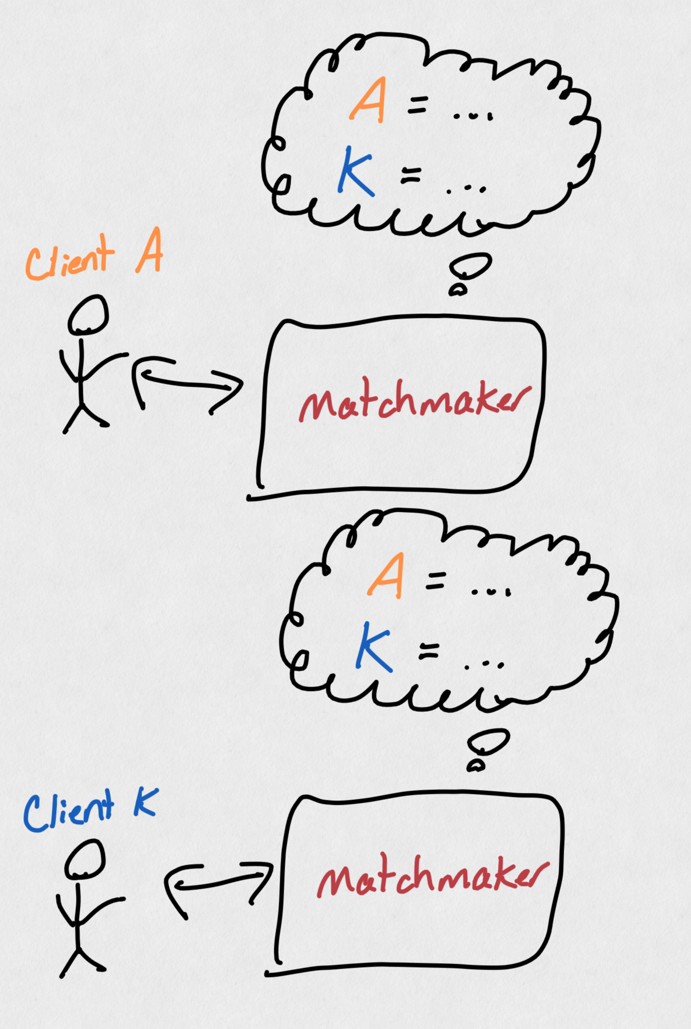 A = ...
K = ...
Client A
Matchmaker
A = ...
K = ...
Client K
Matchmaker